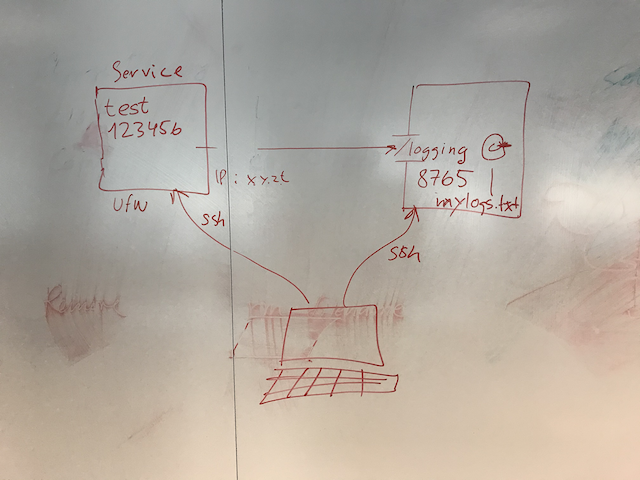 Service
test
123456
ufw
IP: xy.zt
/logging
8765
mylogs.txt
ssh
ssh